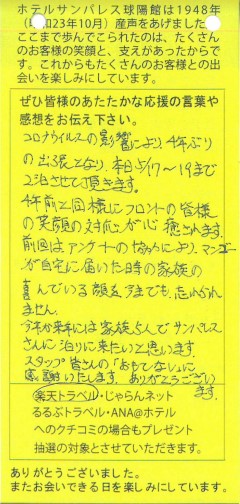 ホテルサンパレス球陽館は1948年
(昭和23年10月)産声をあげました
ここまで歩んでこられたのは、たくさん
のお客様の笑顔と、支えがあったからで
す。これからもたくさんのお客様との出
会いを楽しみにしています。
ぜひ皆様のあたたかな応援の言葉や
感想をお伝え下さい。
コロナウイルスの影響により、4年ぶり
の出張となり、本日5/17〜19まで
2泊させて頂きます。
4年前と同様にフロントの皆様
の笑顔の対応が心癒されます。
前回はアンケートの協力により、マンゴー
が自宅に届いた時の家族の
喜んでいる顔を今までも、忘れられ
ません。
今年か来年には家族5人でサンパレス
さんに泊りに来たいと思います。
スタッフ皆さんの「おもてなし」に
感謝いたします。ありがとうござい
ます。
楽天トラベル・じゃらんネット
るるぶトラベル・ANA@ホテル
へのクチコミの場合もプレゼント
抽選の対象とさせていただきます。
ありがとうございました。
またお会いできる日を楽しみにしています。